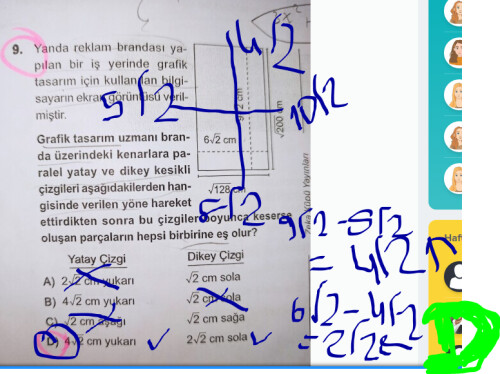 9. Yanda reklam brandası ya-
pılan bir iş yerinde grafik
tasarım için kullanılan bilgi-
sayarın ekran görüntüsü veril-
miştir.
Grafik tasarım uzmanı bran-
da üzerindeki kenarlara pa-
ralel yatay ve dikey kesikli
çizgileri aşağıdakilerden han-
gisinde verilen yöne hareket
ettirdikten sonra bu çizgiler boyunca keserse
oluşan parçaların hepsi birbirine eş olur?
4√2
5√2
10√2
6√2 cm
√200 cm
√128 cm
5√2
Yatay Çizgi Dikey Çizgi
A) 2√2 cm yukarı √2 cm sola
B) 4√2 cm yukarı √2 cm sola
C) √2 cm aşağı √2 cm sağa
D) 4√2 cm yukarı 2√2 cm sola
9√2-5√2
= 4√2 ↑
6√2-4√2
= 2√2 ←
D
Haf